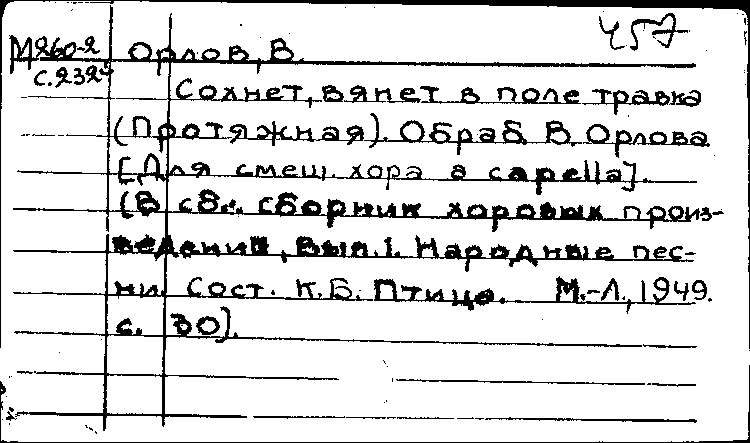 457
М260-2 Орлов, В.
с.2324
Сохнет, вянет в поле травка
(Протяжная). Обраб. В. Орлова
[Для смеш. хора a capella].
(В сб.: Сборник хоровых произ-
ведений, вып.1. Народные пес-
ни. Сост. К.Б. Птица. М.-Л., 1949.
с. 30].